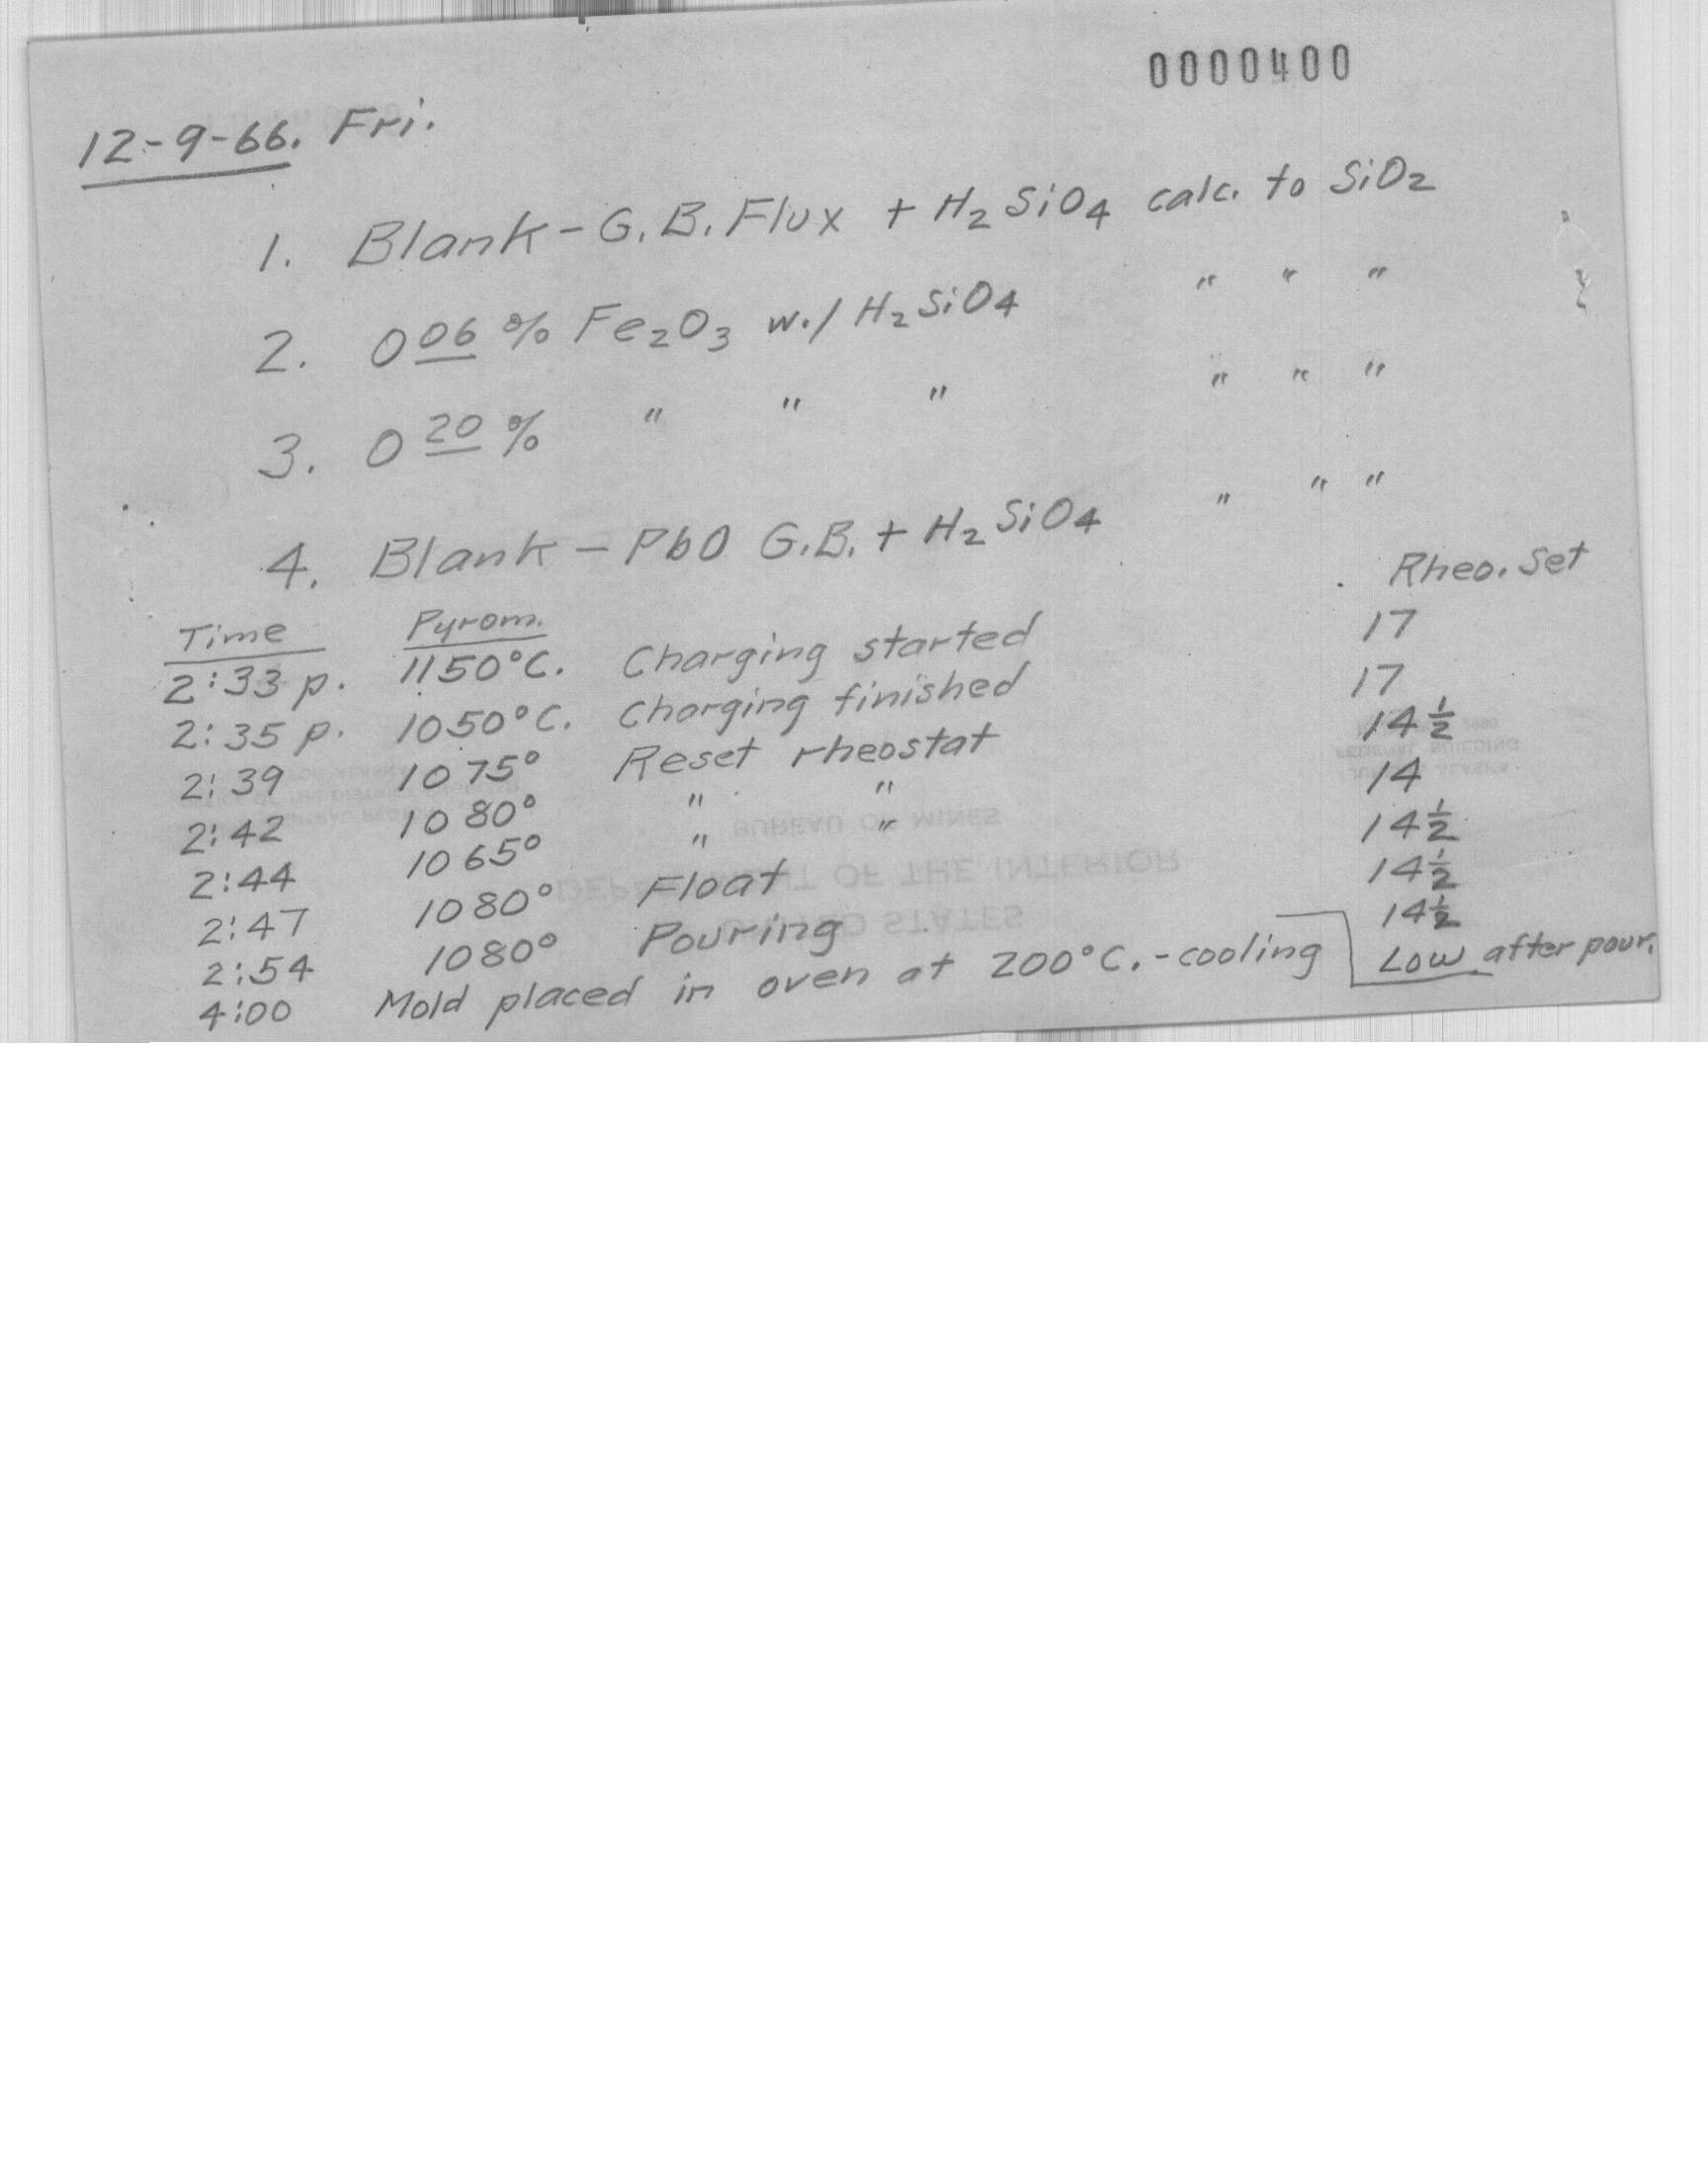 0000400
12-9-66. Fri.
1. Blank - G.B. Flux + H2SiO4 calc. to SiO2
2. 0 06 % Fe2O3 w./ H2SiO4 " " "
3. 0 20 % " " " " " "
4. Blank - PbO G.B. + H2SiO4 " " "
Time Pyrom. Rheo. Set
2:33 p. 1150°C. Charging started 17
2:35 p. 1050°C. Charging finished 17
2:39 1075° Reset rheostat 14 1/2
2:42 1080° " " 14
2:44 1065° " " 14 1/2
2:47 1080° Float 14 1/2
2:54 1080° Pouring 14 1/2
4:00 Mold placed in oven at 200°C. - cooling Low after pour.
BUREAU OF MINES
DEPARTMENT OF THE INTERIOR
UNITED STATES
FEDERAL BUILDING
JUNEAU, ALASKA